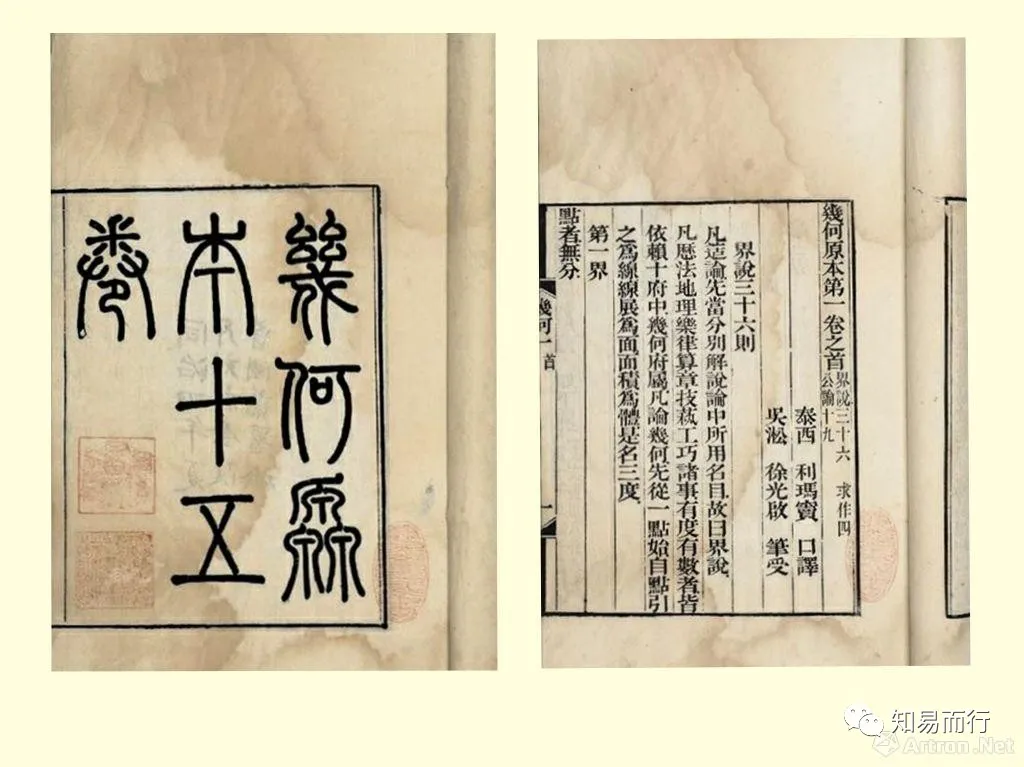 幾何原
本十五
卷
幾何原本第一卷之首
界說三十六
公論十九
求作四
泰西 利瑪竇 口譯
吳淞 徐光啟 筆受
界說三十六則
凡造論先當分別解說論中所用名目故曰界說
凡曆法地理樂律算章技藝工巧諸事有度有數者皆
依賴十府中幾何府屬凡論幾何先從一點始自點引
之為線線展為面面積為體是名三度
第一界
點者無分
幾何一 首
一
知易而行
Artron.Net